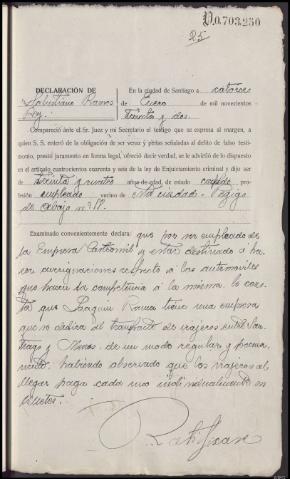 D.0.703,250
25
DECLARACIÓN DE
Sebastián Ramos
Rey.
En la ciudad de Santiago a catorce
de Enero de mil novecientos
treinta y dos.
Compareció ante el Sr. Juez y mi Secretario el testigo que se expresa al margen, a
quien S. S. enteró de la obligación de ser veraz y penas señaladas al delito de falso testi-
monio, prestó juramento en forma legal, ofreció decir verdad, y se le advirtió de lo dispuesto
en el artículo cuatrocientos cuarenta y seis de la ley de Enjuiciamiento criminal y dijo ser
de treinta y cuatro años de edad, de estado casado, pro-
fesión empleado vecino de esta ciudad-
de abajo nº
Examinado convenientemente declara: que por ser empleado de
la Empresa Castromil y estar destinado a ha-
cer averiguaciones respecto a los automóviles
que hacen la competencia a la misma, le cons-
ta que Joaquín Ramos tiene una empresa
que se dedica al transporte de viajeros entre San-
tiago y Noya de un modo regular y perma-
nente, habiendo observado que los viajeros al
llegar pago cada uno individualmente su
billete.